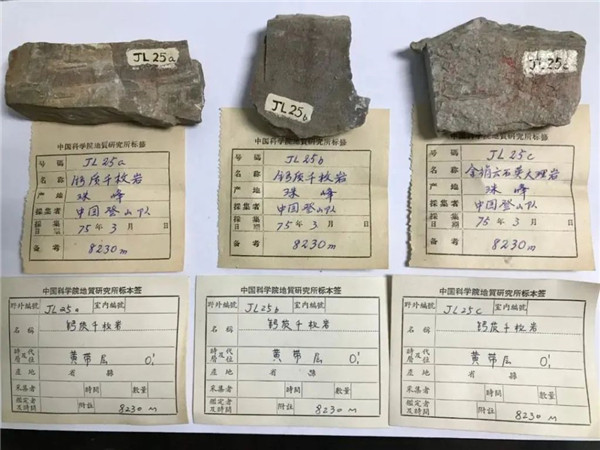 JL25a
JL25b
JL25c
中国科学院地質研究所标簽
号碼 JL25a
名称 钙质千枚岩
产地 珠峰
採集者 中国登山队
採集日期 75年3月 日
备考 8230m
中国科学院地質研究所标簽
号碼 JL25b
名称 钙质千枚岩
产地 珠峰
採集者 中国登山队
採集日期 75年3月 日
备考 8230m
中国科学院地質研究所标簽
号碼 JL25c
名称 含绢云石英大理岩
产地 珠峰
採集者 中国登山队
採集日期 75年3月 日
备考 8230m
中国科学院地質研究所标本签
野外編號 JL25a 室内編號
名稱 钙质千枚岩
時代及層位 黄带层 O¹₁
產地 省 縣
采集者 時間 数量
鑑定者及時間 附註 8230m
中国科学院地質研究所标本签
野外編號 JL25b 室内編號
名稱 钙质千枚岩
時代及層位 黄带层 O¹₁
產地 省 縣
采集者 時間 数量
鑑定者及時間 附註 8230m
中国科学院地質研究所标本签
野外編號 JL25c 室内編號
名稱 钙质千枚岩
時代及層位 黄带层 O¹₁
產地 省 縣
采集者 時間 数量
鑑定者及時間 附註 8230m